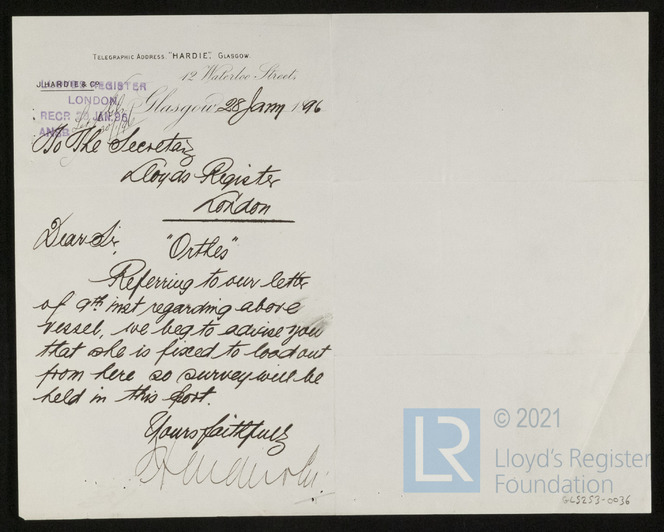 TELEGRAPHIC ADDRESS. "HARDIE", GLASGOW
12 Waterloo Street,
J. HARDIE & Co.
REGISTER
LONDON
Glasgow 28 Jany 1896
RECD 29 JAN 96
ANSD
To The Secretary
Lloyds Register
London
Dear Sir,
"Orthes"
Referring to our letter
of 9th inst regarding above
vessel, we beg to advise you
that she is fixed to load out
from here so survey will be
held in this port.
Yours faithfully
LR
© 2021
Lloyd's Register
Foundation
GLS253-0036